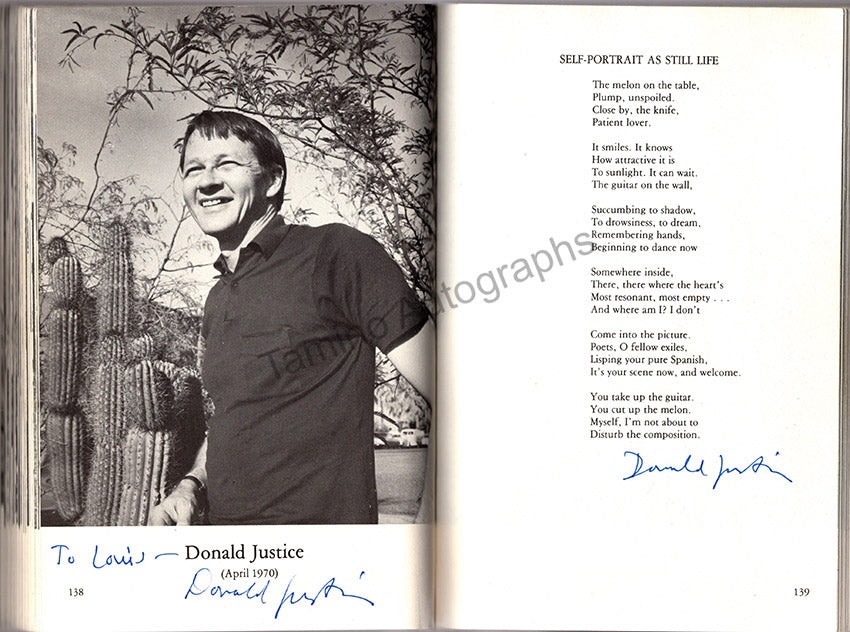 To Louis — Donald Justice
(April 1970)
Donald Justice
138
SELF-PORTRAIT AS STILL LIFE
The melon on the table,
Plump, unspoiled.
Close by, the knife,
Patient lover.
It smiles. It knows
How attractive it is
To sunlight. It can wait.
The guitar on the wall,
Succumbing to shadow,
To drowsiness, to dream,
Remembering hands,
Beginning to dance now
Somewhere inside,
There, there where the heart's
Most resonant, most empty . . .
And where am I? I don't
Come into the picture.
Poets, O fellow exiles,
Lisping your pure Spanish,
It's your scene now, and welcome.
You take up the guitar.
You cut up the melon.
Myself, I'm not about to
Disturb the composition.
Donald Justice
139
Tamino Autographs